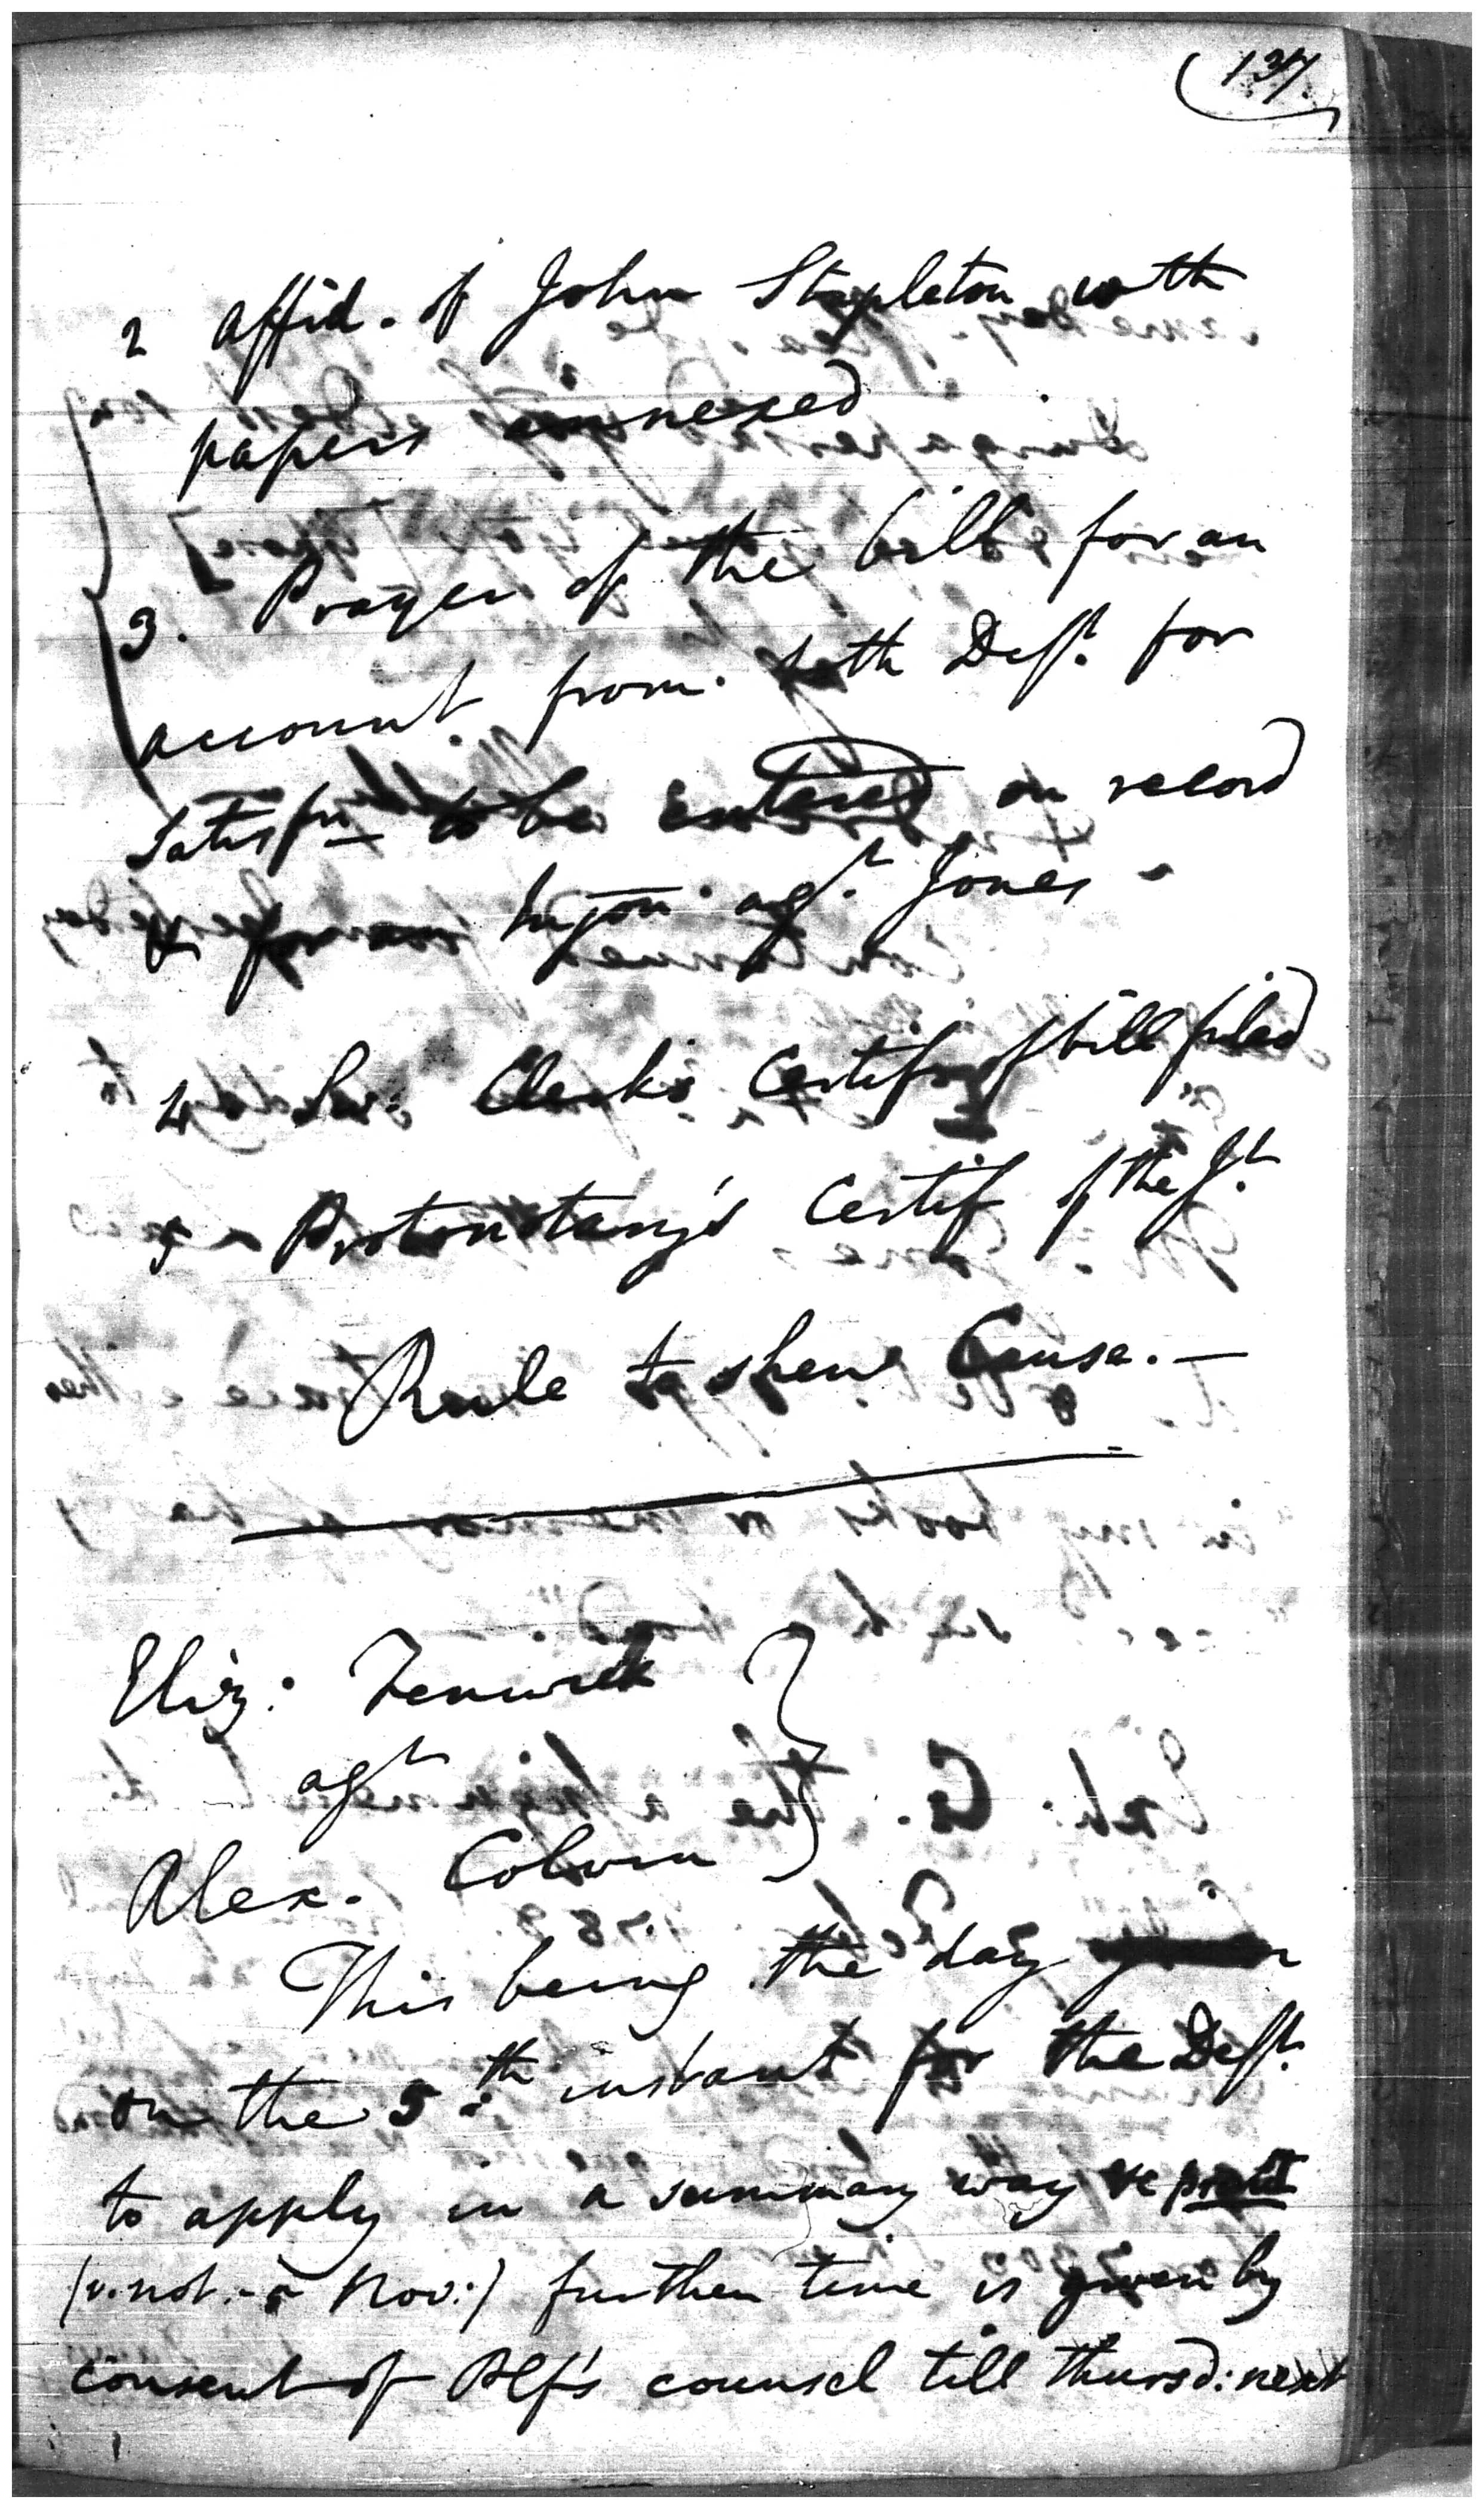 137.
2 affid. of John Stapleton with
papers annexed
3. Prayer of the bill for an
account from both Deft. for
Satisfn to be entered on record
& for an Injon. agt. Jones -
4 Clerk's Certif of bill filed
5 Protonotary's Certif of the Jt.
Rule to shew Cause. —
Eliz: Fenwick
agt
Alex. Colvin
This being the day given
on the 5th instant for the Deft.
to apply in a summary way &c
(v. not. - 5 Nov:) further time is given by
consent of Plf's counsel till thursd: next